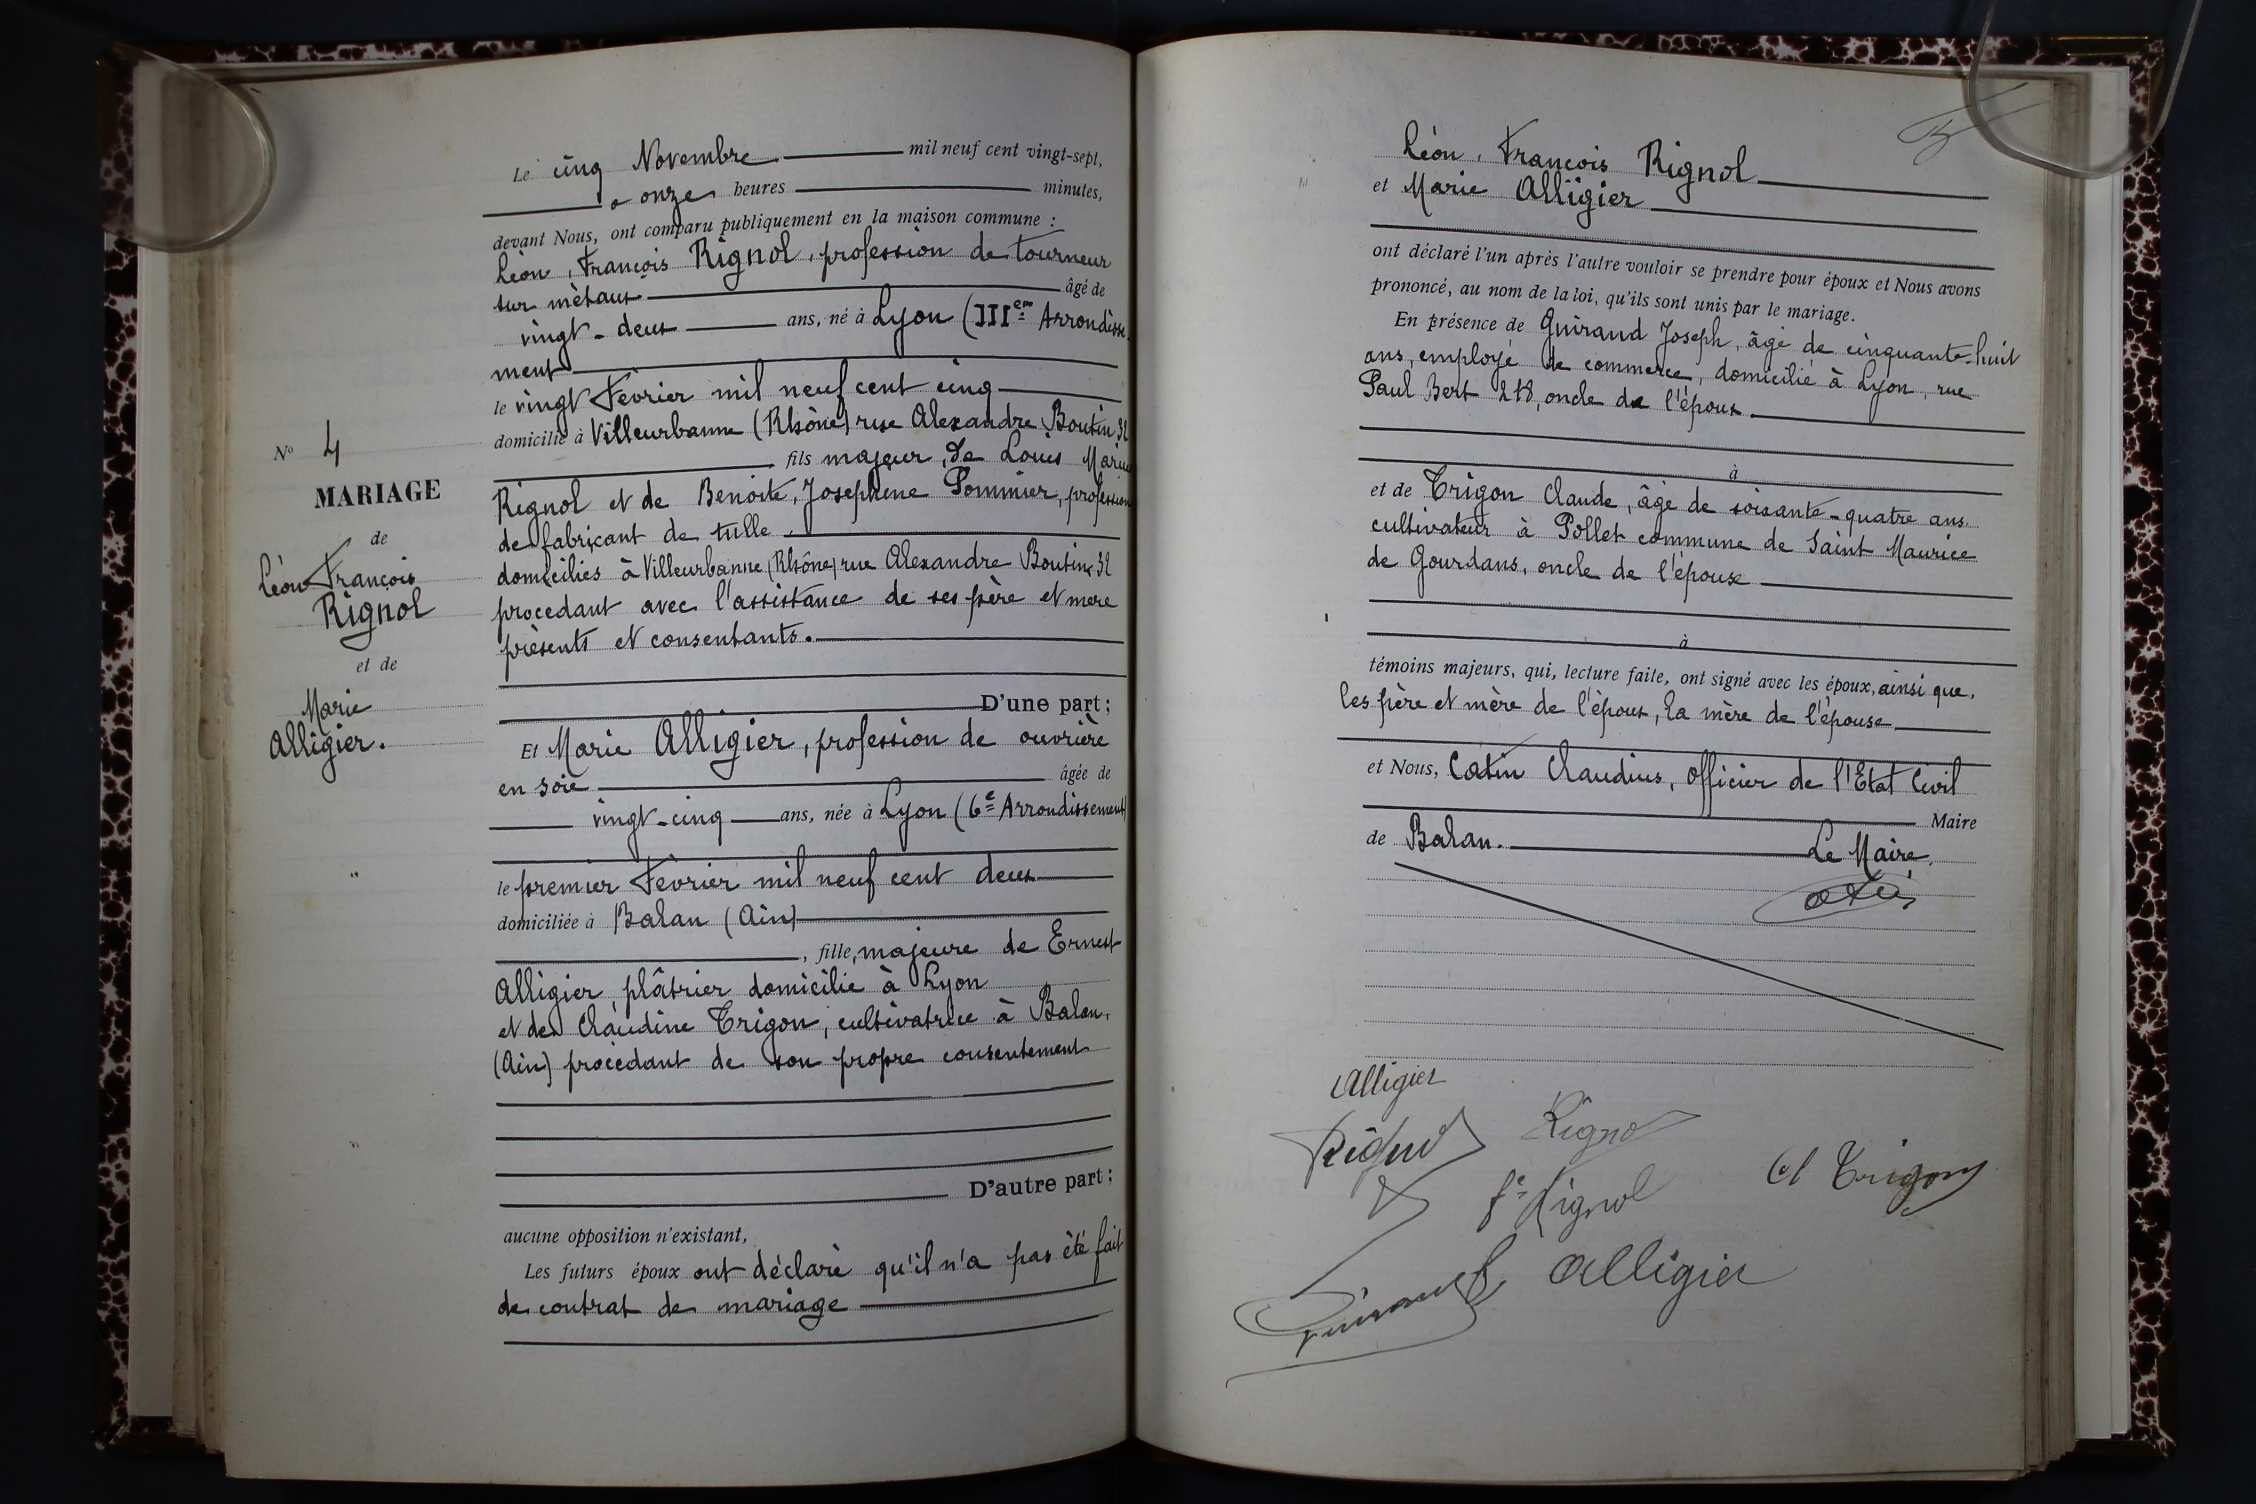 Le cinq Novembre mil neuf cent vingt-sept,
a onze heures minutes,
devant Nous, ont comparu publiquement en la maison commune :
Léon, François Rignol, profession de tourneur
sur métaux âgé de
vingt-deux ans, né à Lyon (IIIem Arrondisse
ment
le vingt Février mil neuf cent cinq
domicilié à Villeurbanne (Rhône) rue Alexandre Boutin 32
fils majeur, de Louis Marius
Rignol et de Benoite, Josephine Pommier, profession
de fabricant de tulle
domiciliés à Villeurbanne (Rhône) rue Alexandre Boutin 32
procedant avec l'assistance de ses père et mere
présents et consentants.
D'une part ;
Nº 4
MARIAGE
de
Léon François
Rignol
et de
Marie
Alligier.
Et Marie Alligier, profession de ouvrière
en soie âgée de
vingt-cinq ans, née à Lyon (6e Arrondissement)
le premier Février mil neuf cent deux
domiciliée à Balan (Ain)
, fille, majeure de Ernest
Alligier, plâtrier domicilié à Lyon
et de Claudine Trigon, cultivatrice à Balan,
(Ain) procédant de son propre consentement
D'autre part ;
aucune opposition n'existant,
Les futurs époux ont déclaré qu'il n'a pas été fait
de contrat de mariage
Léon, François Rignol
et Marie Alligier
ont déclaré l'un après l'autre vouloir se prendre pour époux et Nous avons
prononcé, au nom de la loi, qu'ils sont unis par le mariage.
En présence de Guirand Joseph, âgé de cinquante-huit
ans, employé de commerce, domicilié à Lyon, rue
Paul Bert 218, oncle de l'époux
à
et de Trigon Claude, âgé de soixante-quatre ans
cultivateur à Pollet commune de Saint Maurice
de Gourdans, oncle de l'épouse
à
témoins majeurs, qui, lecture faite, ont signé avec les époux, ainsi que,
les père et mère de l'époux, la mère de l'épouse
et Nous, Catin Claudius, Officier de l'Etat Civil
Maire
de Balan. Le Maire,
Alligier
Rignol
Rignol
Cl Trigon
fe Rignol
Alligier